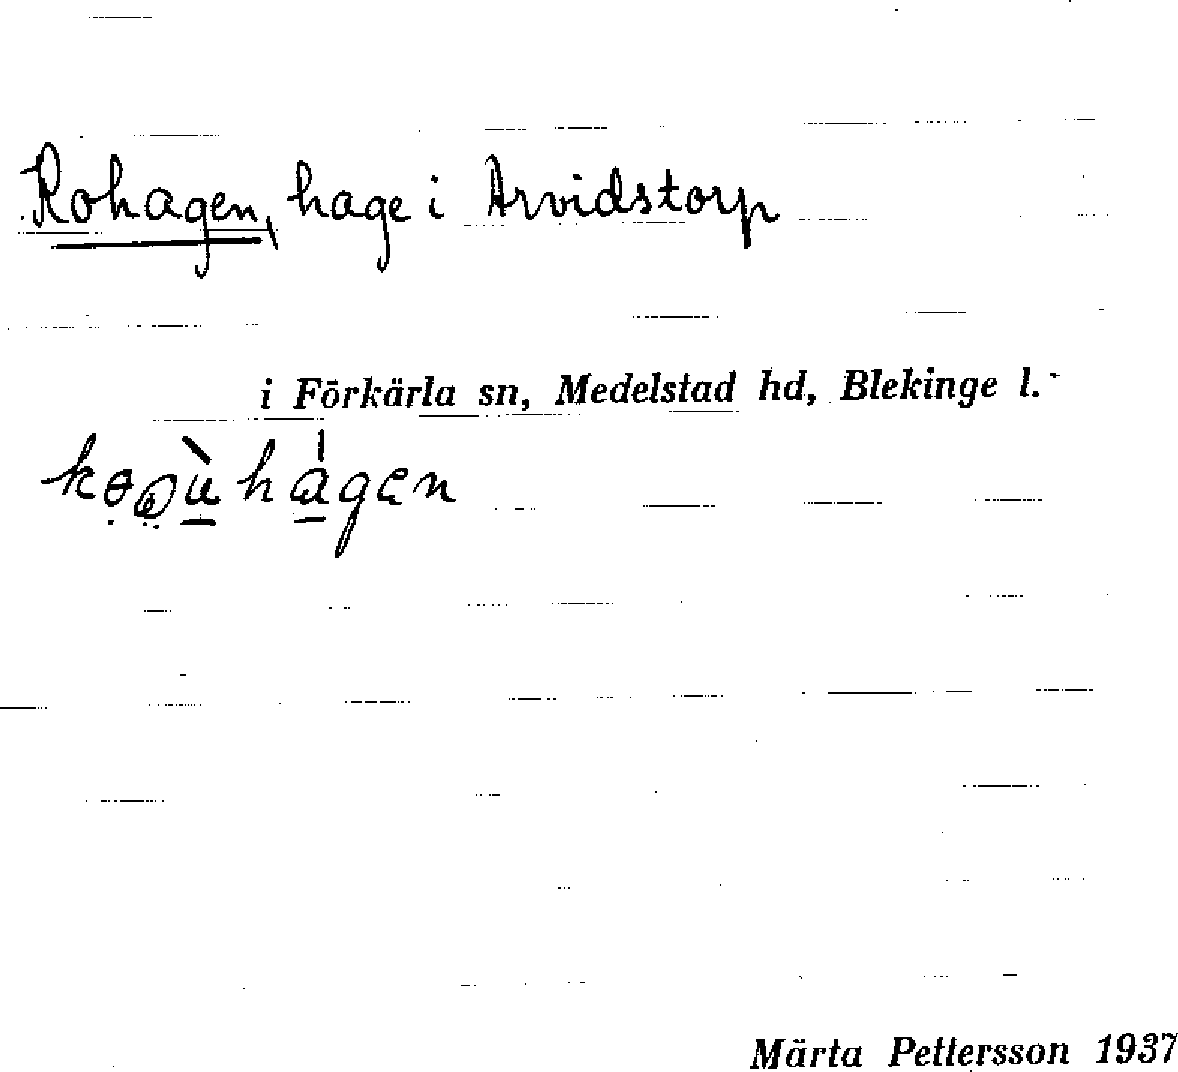 Rohagen, hage i Arvidstorp
i Förkärla sn, Medelstad hd, Blekinge l.
Märta Pettersson 1937